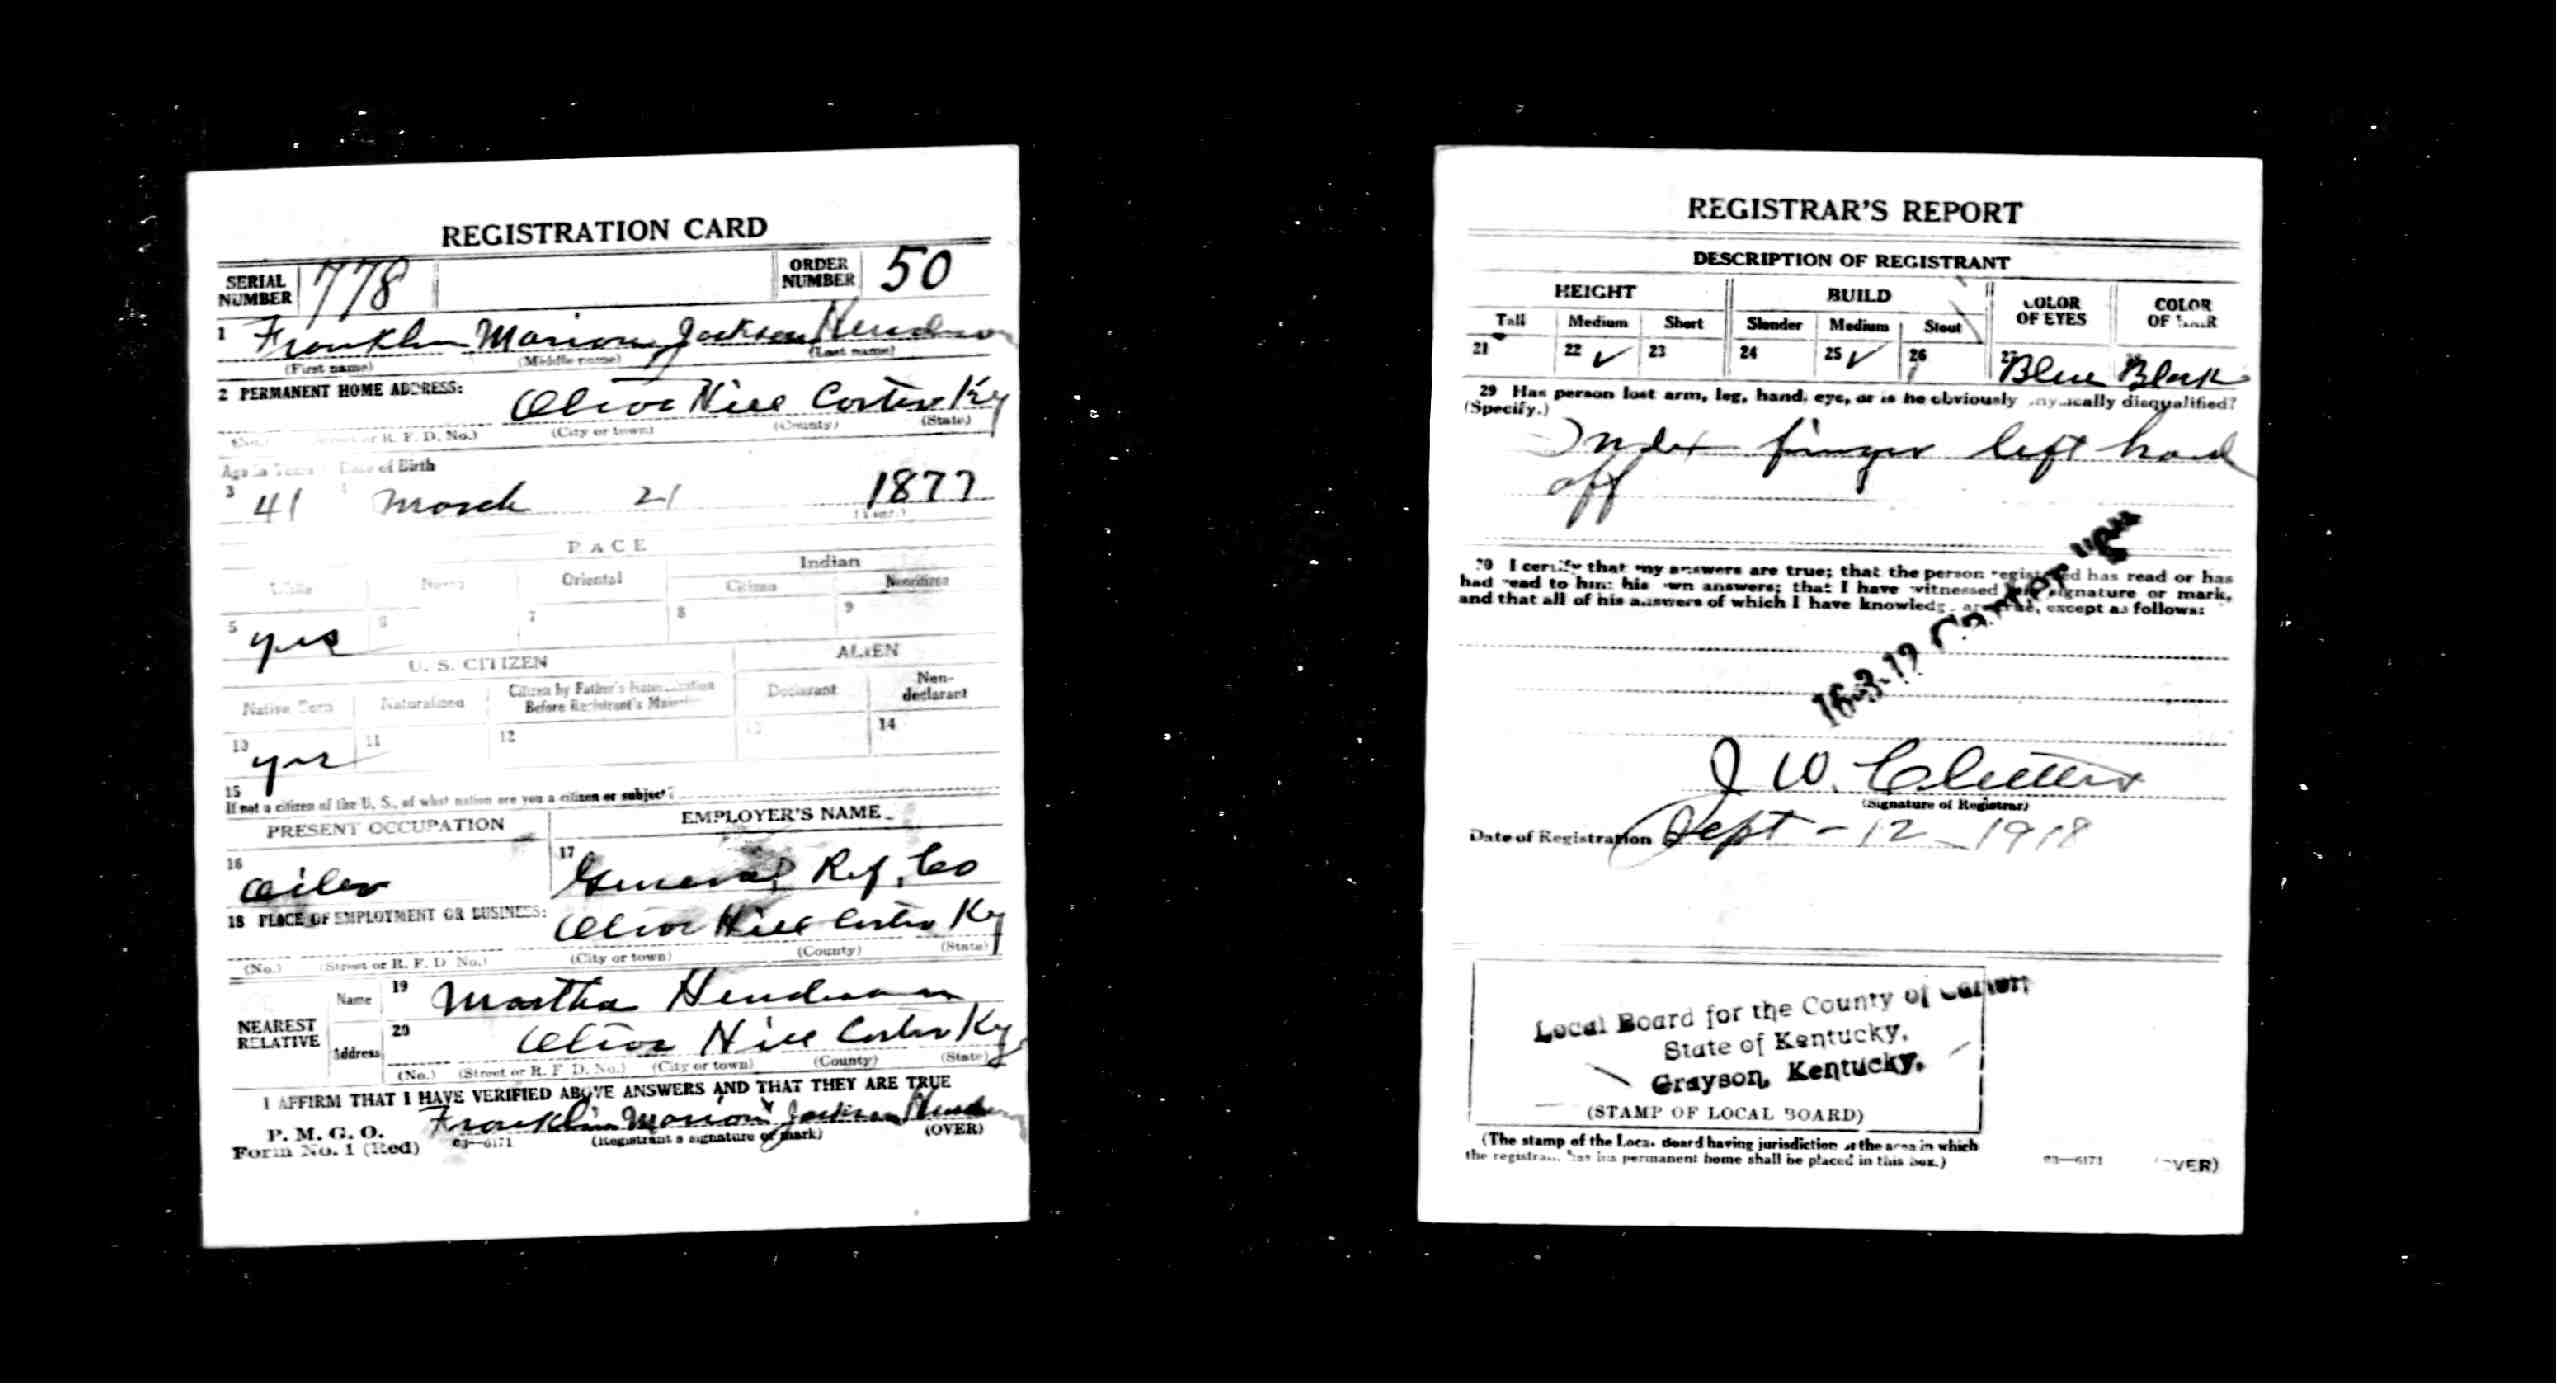 REGISTRATION CARD
SERIAL NUMBER 778 ORDER NUMBER 50
1 Franklin Marion Jackson Henderson
(First name) (Middle name) (Last name)
2 PERMANENT HOME ADDRESS: Olive Hill Carter Ky
(No.) (Street or R. F. D. No.) (City or town) (County) (State)
Age in Years Date of Birth
3 41 March 21 1877
(Year.)
RACE
White Negro Oriental Indian
Citizen Noncitizen
5 yes 6 7 8 9
U. S. CITIZEN ALIEN
Native Born Naturalized Citizen by Father's Naturalization Before Registrant's Majority Declarant Non-declarant
10 yes 11 12 13 14
15
If not a citizen of the U. S., of what nation are you a citizen or subject?
PRESENT OCCUPATION EMPLOYER'S NAME
16 Oiler 17 General Ref. Co
18 PLACE OF EMPLOYMENT OR BUSINESS: Olive Hill Carter Ky
(No.) (Street or R. F. D. No.) (City or town) (County) (State)
NEAREST RELATIVE Name 19 Martha Henderson
Address 20 Olive Hill Carter Ky
(No.) (Street or R. F. D. No.) (City or town) (County) (State)
I AFFIRM THAT I HAVE VERIFIED ABOVE ANSWERS AND THAT THEY ARE TRUE
P. M. G. O. Franklin Marion Jackson
Form No. 1 (Red) 03—6171 (Registrant's signature or mark) (OVER)
REGISTRAR'S REPORT
DESCRIPTION OF REGISTRANT
HEIGHT BUILD COLOR OF EYES COLOR OF HAIR
Tall Medium Short Slender Medium Stout
21 22 ✓ 23 24 25 ✓ 26 27 Blue 28 Black
29 Has person lost arm, leg, hand, eye, or is he obviously physically disqualified?
(Specify.)
Index finger left hand
off
30 I certify that my answers are true; that the person registered has read or has
had read to him his own answers; that I have witnessed his signature or mark,
and that all of his answers of which I have knowledge are true, except as follows:
J W.
(Signature of Registrar)
Date of Registration Sept - 12 - 1918
Local Board for the County of Carter
State of Kentucky,
Grayson, Kentucky.
(STAMP OF LOCAL BOARD)
(The stamp of the Local Board having jurisdiction of the area in which
the registrant has his permanent home shall be placed in this box.)
03—6171 (OVER)